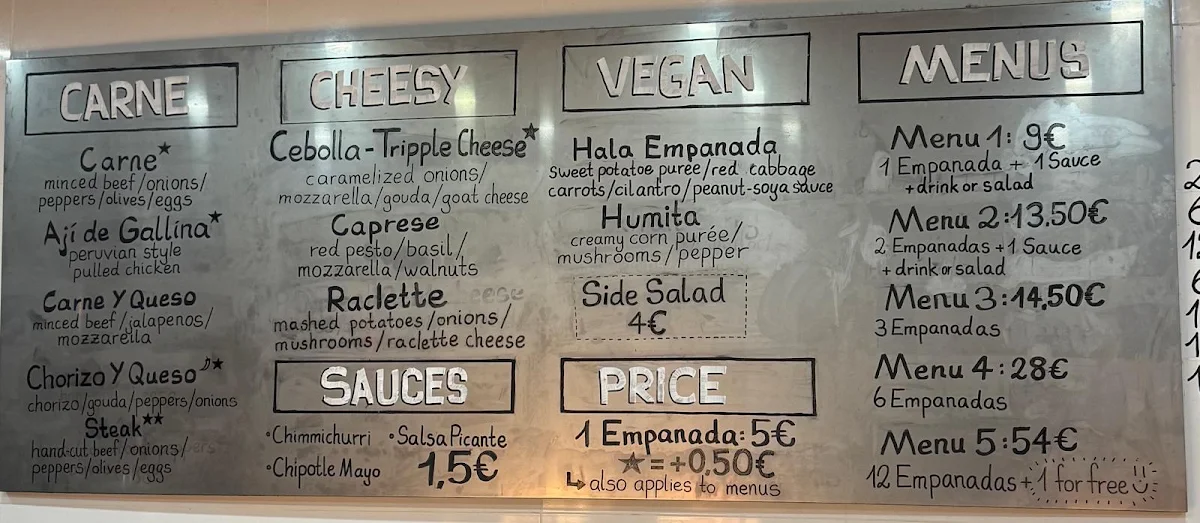 CARNE
Carne★
minced beef/onions/
peppers/olives/eggs
Ají de Gallina★
peruvian style
pulled chicken
Carne Y Queso
minced beef/jalapenos/
mozzarella
Chorizo Y Queso ★
chorizo/gouda/peppers/onions
Steak★★
hand-cut beef/onions/
peppers/olives/eggs
CHEESY
Cebolla-Tripple Cheese★
caramelized onions/
mozzarella/gouda/goat cheese
Caprese
red pesto/basil/
mozzarella/walnuts
Raclette
mashed potatoes/onions/
mushrooms/raclette cheese
SAUCES
•Chimmichurri •Salsa Picante
•Chipotle Mayo 1,5€
VEGAN
Hala Empanada
sweet potatoe purée/red cabbage
carrots/cilantro/peanut-soya sauce
Humita
creamy corn purée/
mushrooms/pepper
Side Salad
4€
PRICE
1 Empanada: 5€
★=+0,50€
↳also applies to menus
MENUS
Menu 1: 9€
1 Empanada + 1 Sauce
+drink or salad
Menu 2:13.50€
2 Empanadas +1 Sauce
+drink or salad
Menu 3:14,50€
3 Empanadas
Menu 4:28€
6 Empanadas
Menu 5:54€
12 Empanadas+1 for free